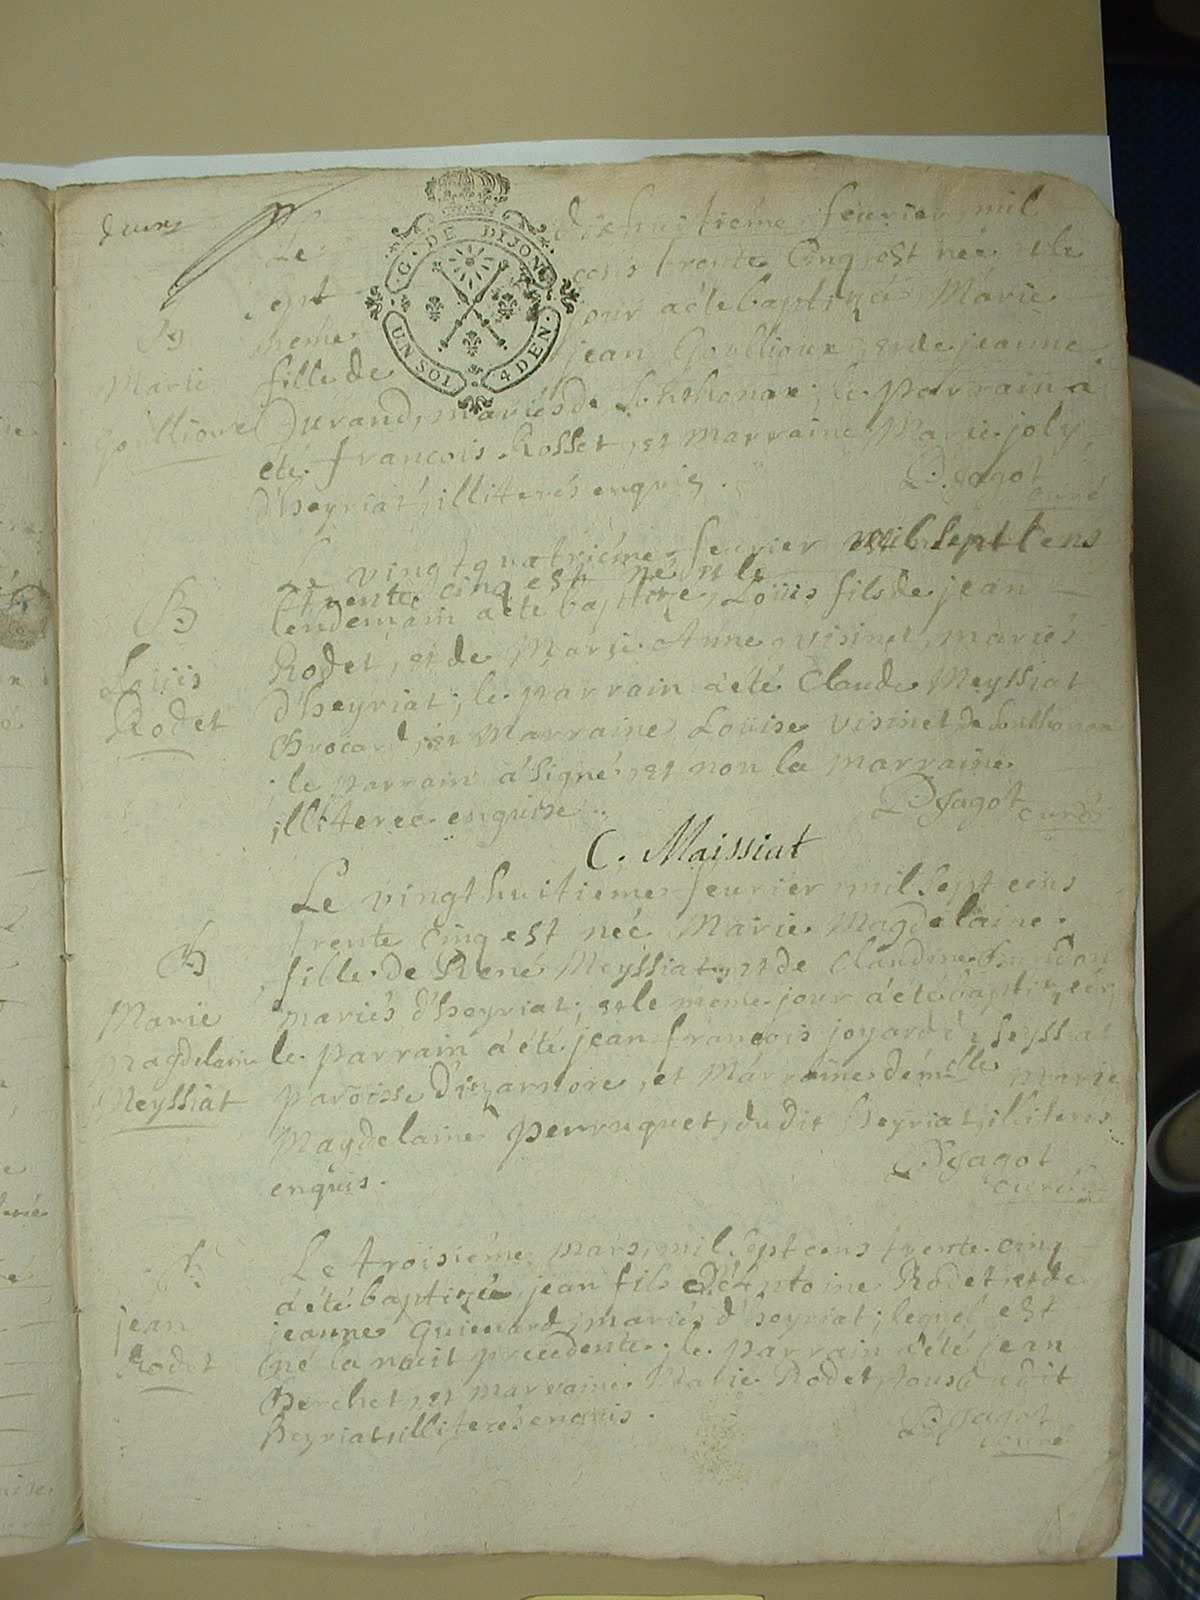 deux
G. DE DIJON
UN SOL 4 DEN.
Le dixhuitiéme feurier mil
sept cens trente Cinq est née et le
meme jour a été baptizée Marie
fille de jean Goullioux, et de jeanne
Durand, mariés de Sonthonax; le parrain a
été francois Rosset, et marraine Marie joly,
d'heyriat, illiterés enquis.
B
Marie
Goullioux
D Jagot
curé
Le vingtquatriéme feurier mil sept Cens
trente cinq est né et le
lendemain a été baptizé, Loüis fils de jean
Rodet, et de Marie Anne visinet, mariés
d'heyriat; le parrain a été Claude Meyssiat
Brocard, et Marraine Loüise visinet de Sonthonax
; le parrain a signé, et non la marraine
illiterée enquise.
B
Loüis
Rodet
D Jagot curé
C. Maissiat
Le vingthuitiéme feurier mil sept cens
trente Cinq est née Marie Magdelaine
fille de René Meyssiat, et de Claudine
mariés d'heyriat; et le même jour a été baptizée;
le parrain a été jean francois joyard
paroisse d'izarnore, et Marraine demlle Marie
Magdelaine perruquet, du dit heyriat, illiterés
enquis.
B
Marie
Magdelaine
Meyssiat
D Jagot
curé
Le troisiéme mars, mil sept cens trente cinq
a été baptizé, jean fils d'Antoine Rodet, et de
jeanne Guienard, mariés d'heyriat; lequel est
né la nuit precedente; le parrain a été jean
Berchet, et marraine Marie Rodet, tous du dit
heyriat, illiterés enquis.
B
jean
Rodet
D Jagot
curé